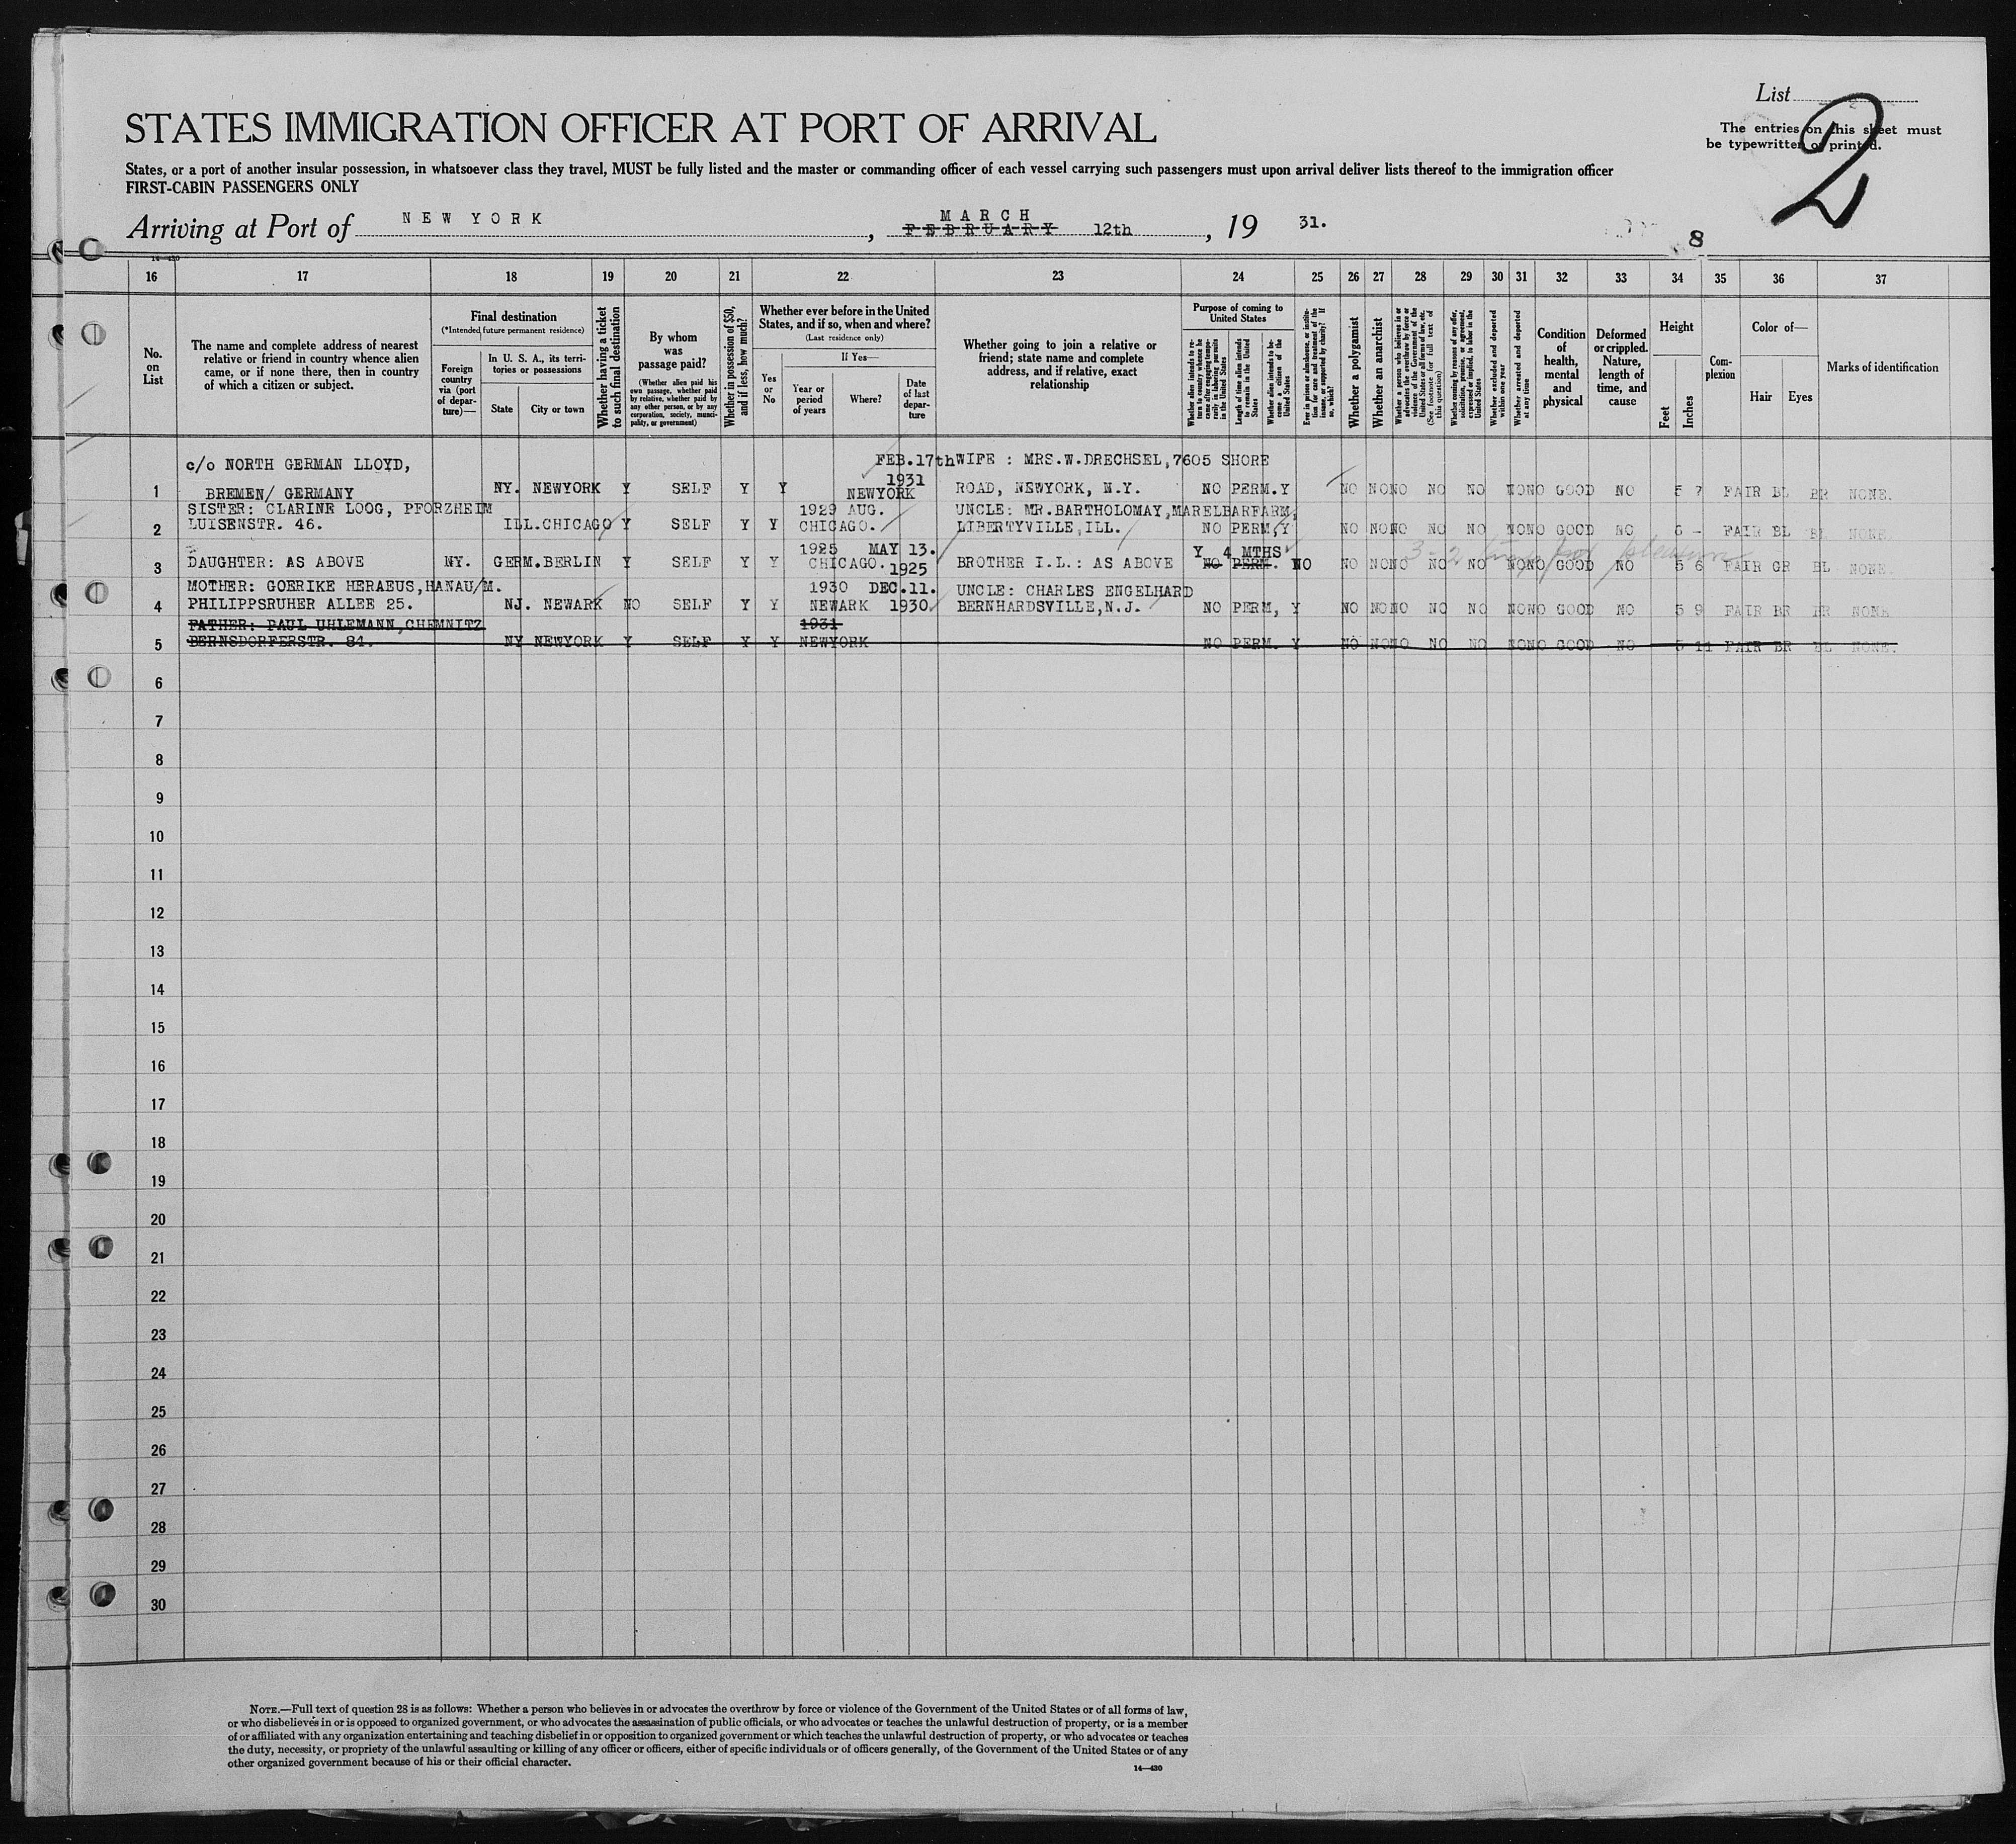 List
2
The entries on this sheet must
be typewritten or printed.
STATES IMMIGRATION OFFICER AT PORT OF ARRIVAL
States, or a port of another insular possession, in whatsoever class they travel, MUST be fully listed and the master or commanding officer of each vessel carrying such passengers must upon arrival deliver lists thereof to the immigration officer
FIRST-CABIN PASSENGERS ONLY
Arriving at Port of NEW YORK, FEBRUARY MARCH 12th, 19 31.
8
14—430
16 17 18 19 20 21 22 23 24 25 26 27 28 29 30 31 32 33 34 35 36 37
No. on List
The name and complete address of nearest relative or friend in country whence alien came, or if none there, then in country of which a citizen or subject.
Final destination
(*Intended future permanent residence)
Foreign country via (port of departure)—
In U. S. A., its territories or possessions
State
City or town
Whether having a ticket to such final destination
By whom was passage paid?
(Whether alien paid his own passage, whether paid by relative, whether paid by any other person, or by any corporation, society, municipality, or government)
Whether in possession of $50, and if less, how much?
Whether ever before in the United States, and if so, when and where?
(Last residence only)
Yes or No
If Yes—
Year or period of years
Where?
Date of last departure
Whether going to join a relative or friend; state name and complete address, and if relative, exact relationship
Purpose of coming to United States
Whether alien intends to return to country whence he came after engaging temporarily in laboring pursuits in the United States
Length of time alien intends to remain in the United States
Whether alien intends to become a citizen of the United States
Ever in prison or almshouse, or institution for care and treatment of the insane, or supported by charity? If so, which?
Whether a polygamist
Whether an anarchist
Whether a person who believes in or advocates the overthrow by force or violence of the Government of the United States or all forms of law, etc. (See footnote for full text of this question)
Whether coming by reasons of any offer, solicitation, promise, or agreement, expressed or implied, to labor in the United States
Whether excluded and deported within one year
Whether arrested and deported at any time
Condition of health, mental and physical
Deformed or crippled. Nature, length of time, and cause
Height
Feet
Inches
Complexion
Color of—
Hair
Eyes
Marks of identification
c/o NORTH GERMAN LLOYD, FEB.17th WIFE : MRS.W.DRECHSEL,7605 SHORE
1931
1 BREMEN/ GERMANY NY. NEWYORK Y SELF Y Y NEWYORK ROAD, NEWYORK, N.Y. NO PERM.Y NO NO NO NO NO NO NO GOOD NO 5 7 FAIR BL BR NONE.
SISTER: CLARINE LOOG, PFORZHEIM 1929 AUG. UNCLE: MR.BARTHOLOMAY,MARELBARFARM,
2 LUISENSTR. 46. ILL.CHICAGO Y SELF Y Y CHICAGO. LIBERTYVILLE,ILL. NO PERM,Y NO NO NO NO NO NO NO GOOD NO 6 - FAIR BL BL NONE
1925 MAY 13. Y 4 MTHS
3 DAUGHTER: AS ABOVE NY. GERM.BERLIN Y SELF Y Y CHICAGO. 1925 BROTHER I.L.: AS ABOVE NO PERM. NO NO NO NO NO NO NO NO GOOD NO 5 6 FAIR GR BL NONE.
MOTHER: GOERIKE HERAEUS,HANAU/M. 1930 DEC.11. UNCLE: CHARLES ENGELHARD
4 PHILIPPSRUHER ALLEE 25. NJ. NEWARK NO SELF Y Y NEWARK 1930. BERNHARDSVILLE,N.J. NO PERM, Y NO NO NO NO NO NO NO GOOD NO 5 9 FAIR BR BR NONE
FATHER: PAUL UHLEMANN,CHEMNITZ 1931
5 BERNSDORFERSTR. 84. NY NEWYORK Y SELF Y Y NEWYORK NO PERM. Y NO NO NO NO NO NO NO GOOD NO 5 11 FAIR BR BL NONE.
6
7
8
9
10
11
12
13
14
15
16
17
18
19
20
21
22
23
24
25
26
27
28
29
30
NOTE.—Full text of question 28 is as follows: Whether a person who believes in or advocates the overthrow by force or violence of the Government of the United States or of all forms of law,
or who disbelieves in or is opposed to organized government, or who advocates the assassination of public officials, or who advocates or teaches the unlawful destruction of property, or is a member
of or affiliated with any organization entertaining and teaching disbelief in or opposition to organized government or which teaches the unlawful destruction of property, or who advocates or teaches
the duty, necessity, or propriety of the unlawful assaulting or killing of any officer or officers, either of specific individuals or of officers generally, of the Government of the United States or of any
other organized government because of his or their official character.
14—430